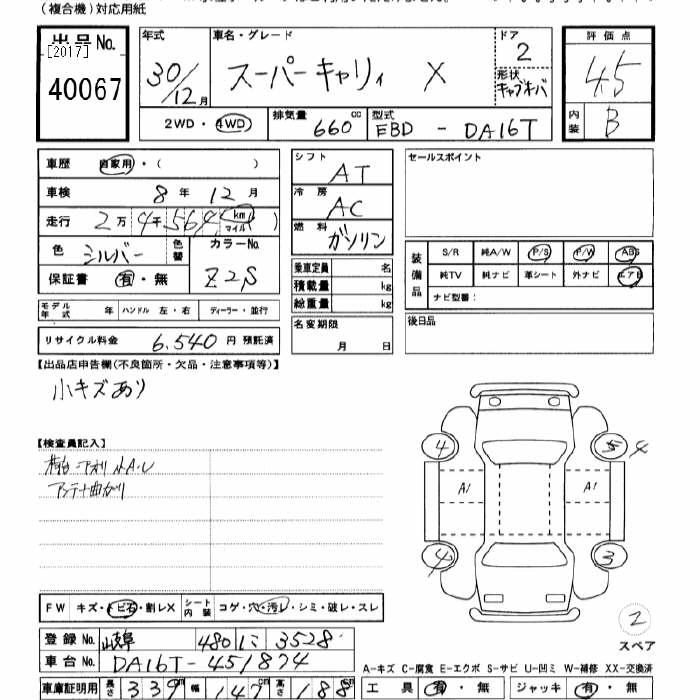 (複合機)対応用紙
出品No.
[2017]
40067
年式
30/12月
車名・グレード
スーパーキャリィ X
ドア
2
形状
キャブオーバ
評価点
4.5
内装
B
2WD・4WD
排気量
660cc
型式
EBD - DA16T
車歴 自家用・( )
車検 8年 12月
走行 2万4千564 km マイル( )
色 シルバー 色替
カラーNo. Z2S
保証書 有・無
シフト
AT
冷房
AC
燃料
ガソリン
乗車定員 名
積載量 kg
総重量 kg
セールスポイント
装備品
S/R 純A/W P/S P/W ABS
純TV 純ナビ 革シート 外ナビ エアB
ナビ型番:
モデル年式 年 ハンドル 左・右 ディーラー・並行
リサイクル料金 6,540円 預託済
名変期限
月 日
後日品
【出品店申告欄(不良箇所・欠品・注意事項等)】
小キズあり
【検査員記入】
荷台・アオリ小A・U
アンテナ曲がり
4 5 4
A1 A1
4 3
2
スペア
FW キズ・トビ石・割レX シート内装 コゲ・穴・汚レ・シミ・破レ・スレ
登録No. 岐阜 480 に 3528
車台No. DA16T-451874
車庫証明用 長さ 339cm 幅 147cm 高さ 188cm
A-キズ C-腐食 E-エクボ S-サビ U-凹ミ W-補修 XX-交換済
工具 有・無 ジャッキ 有・無